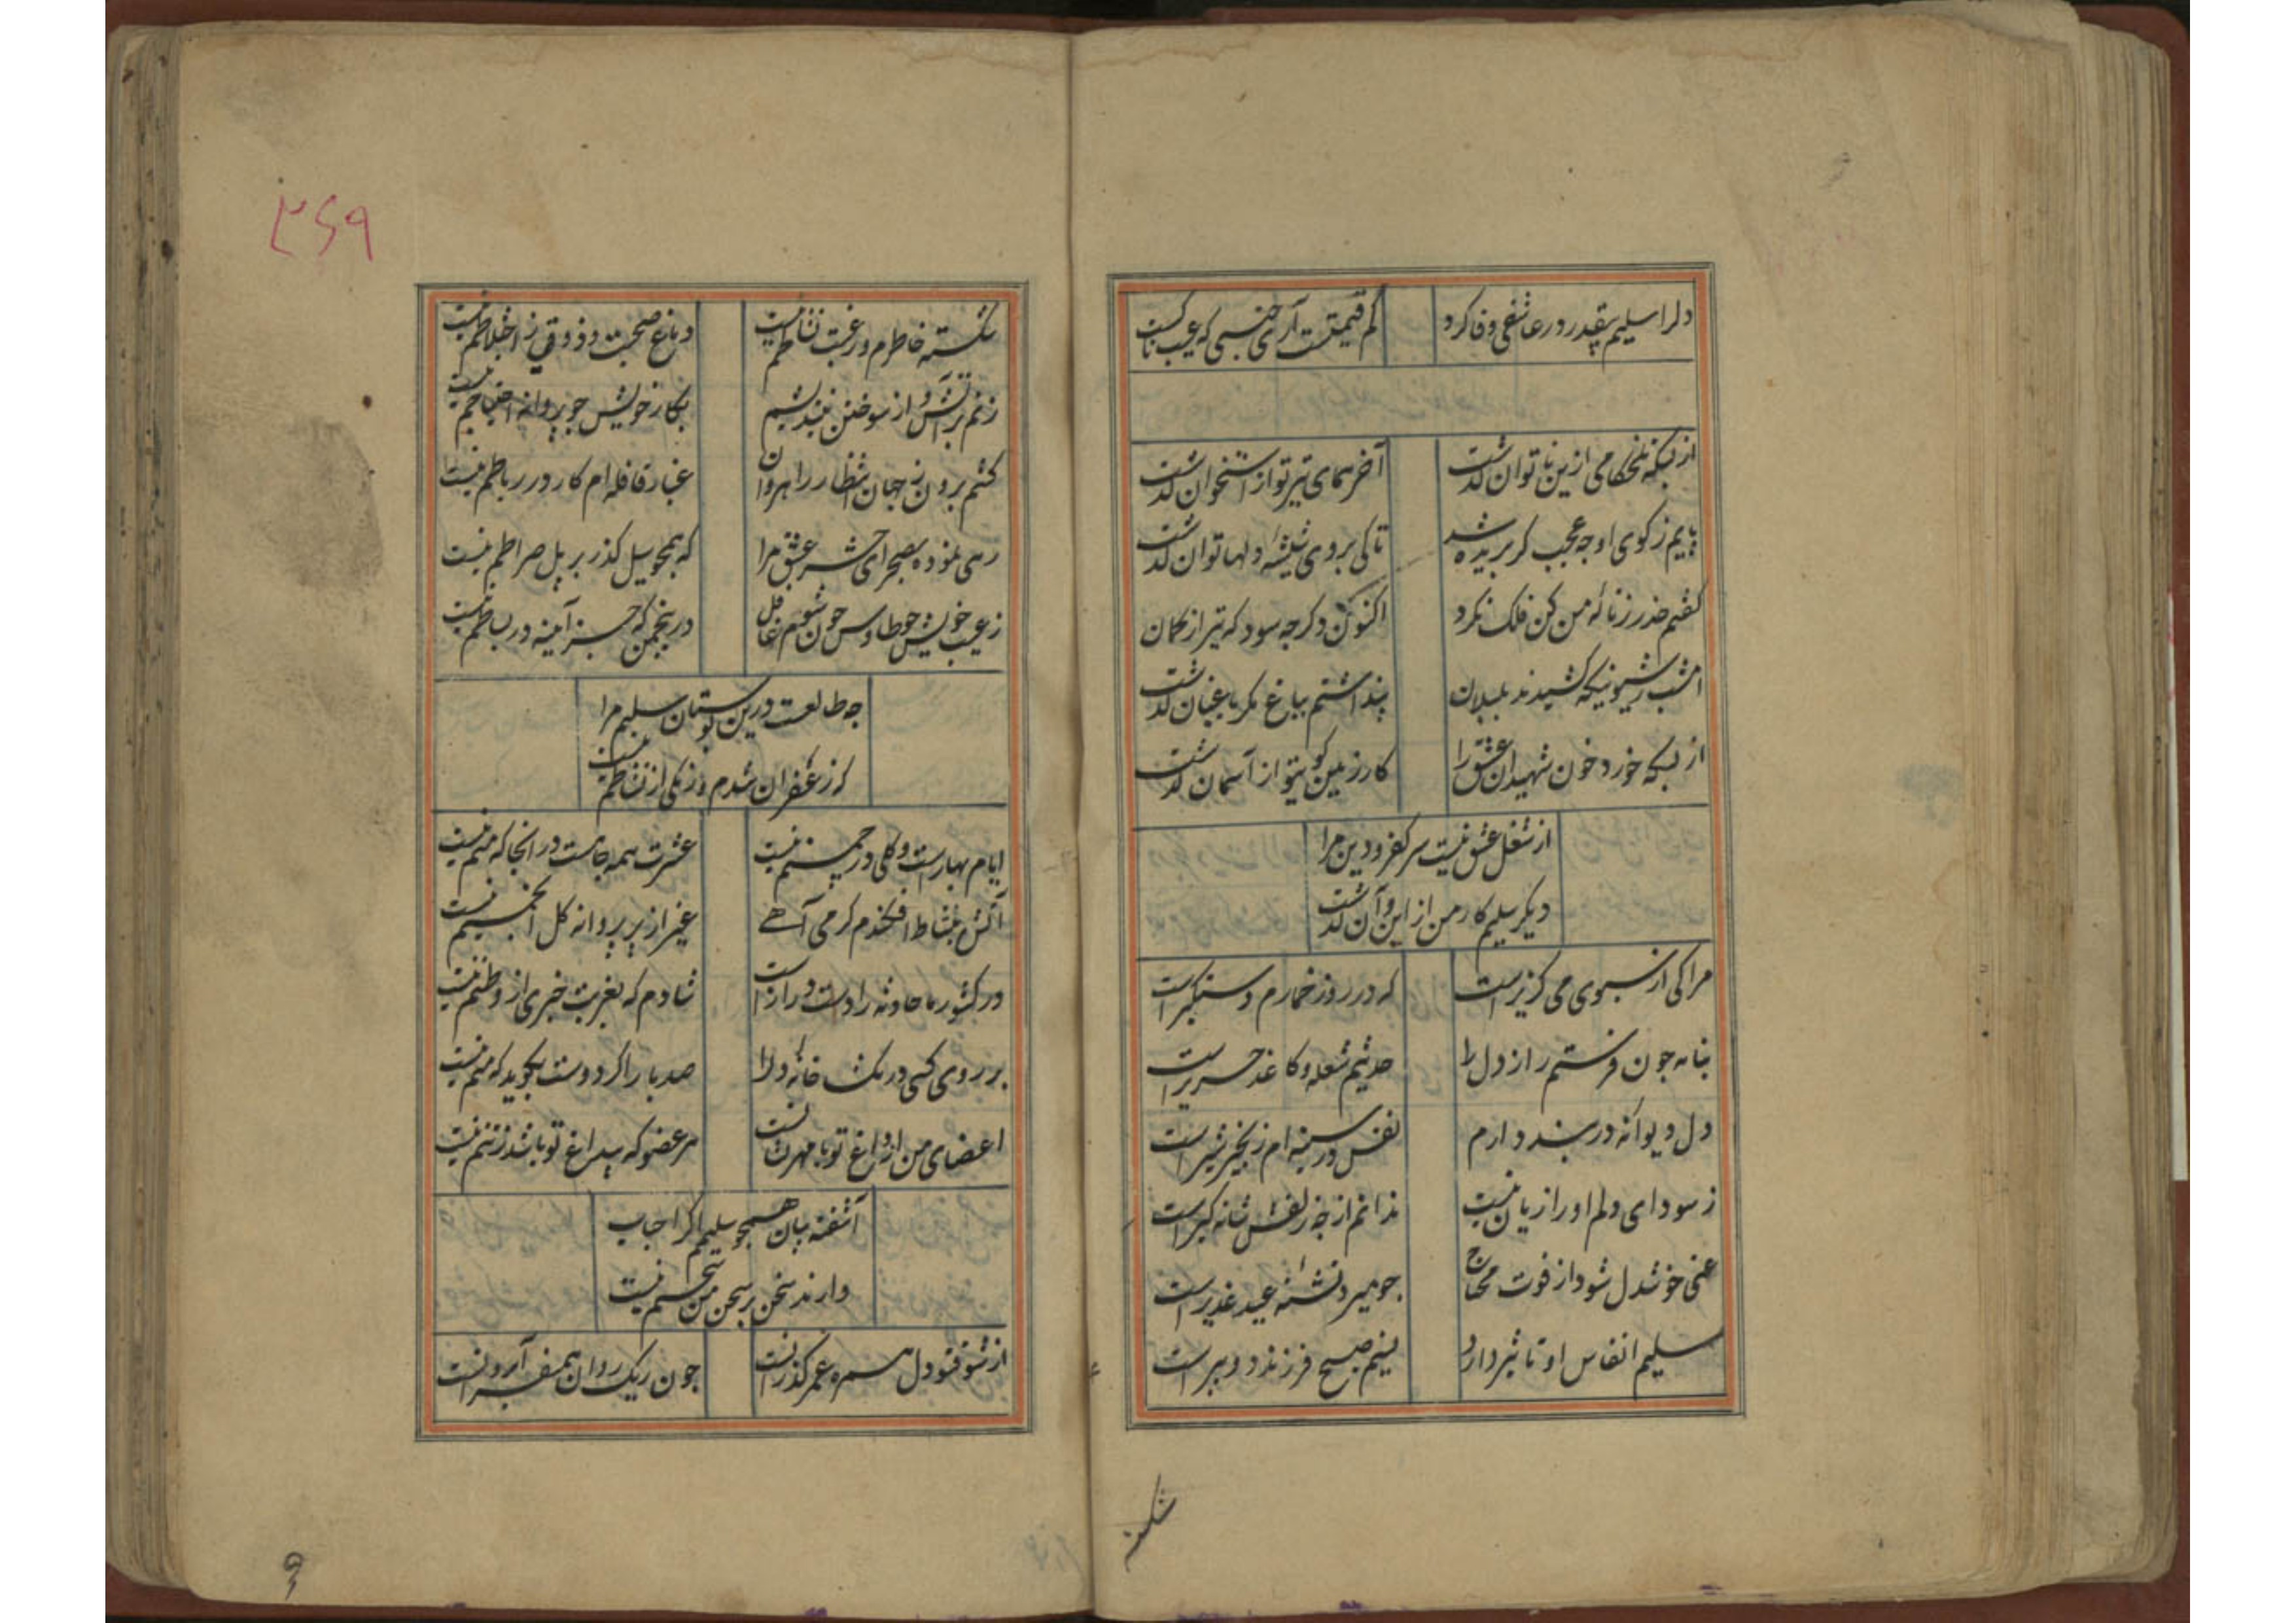 دلرا سلیم بیقدر در عاشقی وفا کرد
کم قیمتست آری جنسی که عیب ناکست
از بسکه تلخکامی ازین ناتوان گذشت
آخر همای تیر تو از استخوان گذشت
پایم ز کوی او چه عجب گر بریده شد
تا کی بروی شیشه دلها توان گذشت
کفتم حذر ز نالهٔ من کن فلک نکرد
اکنون دکر چه سود که تیر از کمان
امشب ز شیونیکه کشیدند بلبلان
پنداشتم بباغ مکر باغبان گذشت
از بسکه خورد خون شهیدان عشق را
کار زمین کوی تو از آسمان گذشت
از شغل عشق نیست سر کفر و دین مرا
دیکر سلیم کار من از این و آن گذشت
مرا کی از سبوی می کزیر است
که در روز خمارم دستگیر است
بنامه چون فرستم راز دل را
حدیثم شعله و کاغذ حریر است
دل دیوانه در بند دارم
نفس در سینه ام زنجیر شیر است
ز سودای دلم او را زیان نیست
ندانم از چه زلفش شانه کیر است
غنی خوشدل شود از فوت محتاج
چو میرد تشنهٔ عید غدیر است
سلیم انفاس او تاثیر دارد
نسیم صبح فرزند دو پیر است
شکسته
۳۶۹
شکسته خاطرم و رغبت نشاطم نیست
دماغ صحبت و ذوقی ز اختلاطم نیست
زنم بر آتش و از سوختن نیندیشم
بکار خویش چو پروانه احتیاطم نیست
کشم برون ز جهان انتظار راهروان
غبار قافله ام کار در رباطم نیست
رهی نموده بصحرای حشر عشق مرا
که همچو سیل کذر بر پل صراطم نیست
ز عیب خویش چو طاوس چون شوم غافل
در انجمن که جز آینه در بساطم نیست
چه طالعست درین بوستان سلیم مرا
که زعفران شدم و رنکی از نشاطم نیست
ایام بهارست و کلی در چمنم نیست
عشرت همه جا هست در آنجا که منم نیست
آتش بنشاط افکندم کرمی آهی
غیر از پر پروانه کل انجمنم نیست
در کشور ما حادثه را دست دراز است
شادم که بغربت خبری از وطنم نیست
بر روی کسی در نکشد خانهٔ دلرا
صد بار اکر دوست بکوید که منم نیست
اعضای من از داغ تو با مهر و نشانست
هر عضو که بیداغ تو باشد ز تنم نیست
آشفته بیان همچو سلیمم اکر احباب
دارند سخن بر سخن من سخنم نیست
از شوق تو دل همره عمر کذرانست
چون ریک روان همسفر آب روانست